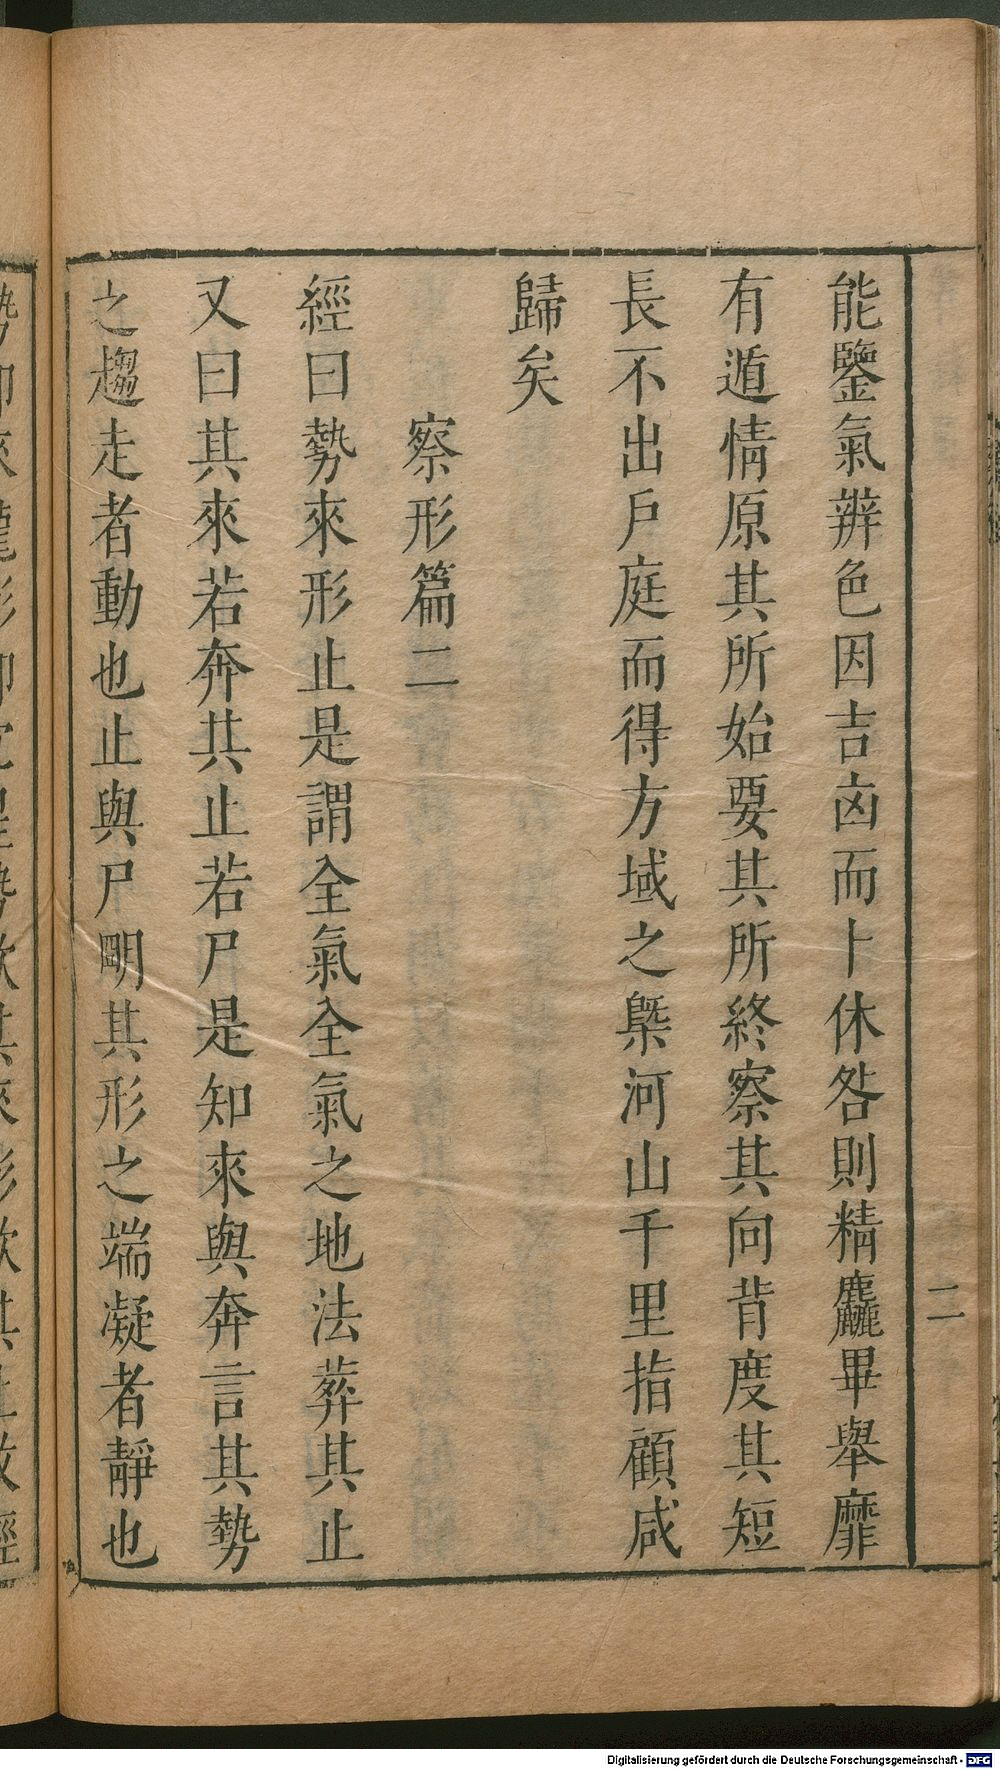 能鑒氣辨色因吉凶而卜休咎則精麤畢舉靡
有遁情原其所始要其所終察其向背度其短
長不出戶庭而得方域之槩河山千里指顧咸
歸矣
察形篇二
經曰勢來形止是謂全氣全氣之地法葬其止
又曰其來若奔其止若尸是知來與奔言其勢
之趨走者動也止與尸明其形之端凝者靜也
二
Digitalisierung gefördert durch die Deutsche Forschungsgemeinschaft - DFG